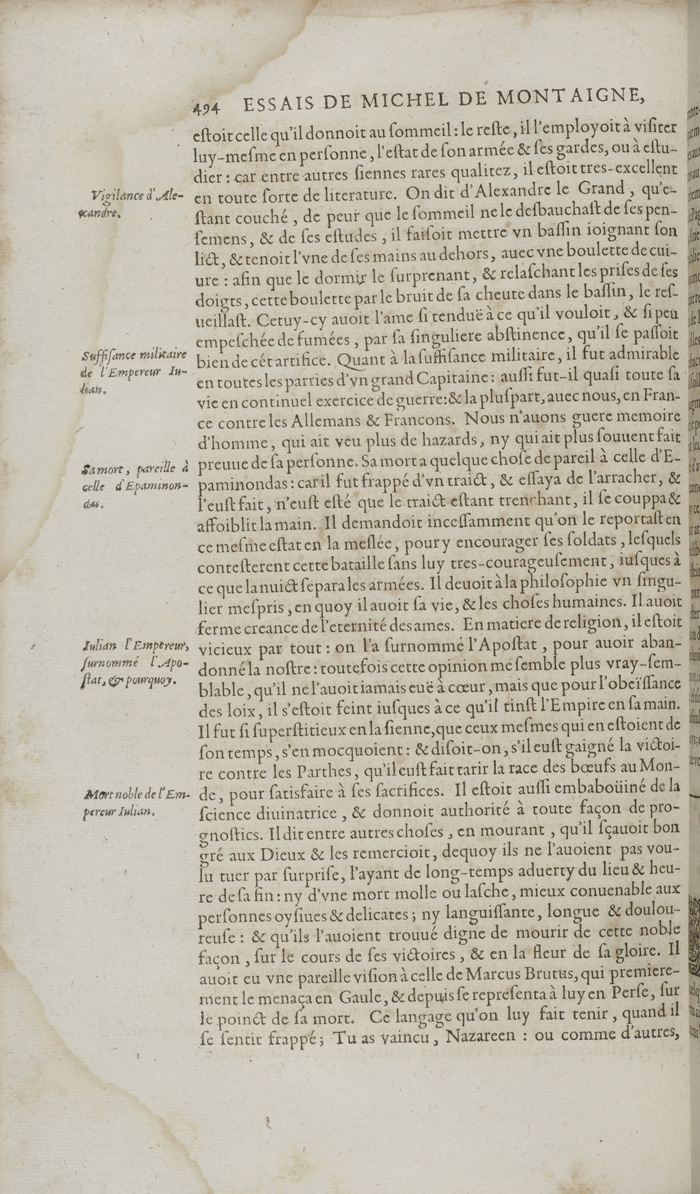 494 ESSAIS DE MICHEL DE MONTAIGNE,
eſtoit celle qu'il donnoit au ſommeil : le reſte, il l'employoit à viſiter
luy-meſme en perſonne, l'eſtat de ſon armée & ſes gardes, ou à eſtu-
dier : car entre autres ſiennes rares qualitez, il eſtoit tres-excellent
Vigilance d'Ale-
xandre.
en toute ſorte de literature. On dit d'Alexandre le Grand, qu'e-
ſtant couché, de peur que le ſommeil ne le desbauchaſt de ſes pen-
ſemens, & de ſes eſtudes, il faiſoit mettre vn baſſin ioignant ſon
lict, & tenoit l'vne de ſes mains au dehors, auec vne boulette de cui-
ure : afin que le dormir le ſurprenant, & relaſchant les priſes de ſes
doigts, cette boulette par le bruit de ſa cheute dans le baſſin, le reſ-
ueillaſt. Cetuy-cy auoit l'ame ſi tenduë à ce qu'il vouloit, & ſi peu
empeſchée de fumées, par ſa ſinguliere abſtinence, qu'il ſe paſſoit
Suffiſance militaire
de l'Empereur Iu-
lian.
bien de cét artifice. Quant à la ſuffiſance militaire, il fut admirable
en toutes les parries d'vn grand Capitaine : auſſi fut-il quaſi toute ſa
vie en continuel exercice de guerre: & la pluſpart, auec nous, en Fran-
ce contre les Allemans & Francons. Nous n'auons guere memoire
d'homme, qui ait veu plus de hazards, ny qui ait plus ſouuent fait
Sa mort, pareille à
celle d'Epaminon-
das.
preuue de ſa perſonne. Sa mort a quelque choſe de pareil à celle d'E-
paminondas : car il fut frappé d'vn traict, & eſſaya de l'arracher, &
l'euſt fait, n'euſt eſté que le traict eſtant trenchant, il ſe couppa &
affoiblit la main. Il demandoit inceſſamment qu'on le reportaſt en
ce meſme eſtat en la meſlée, pour y encourager ſes ſoldats, leſquels
conteſterent cette bataille ſans luy tres-courageuſement, iuſques à
ce que la nuict ſepara les armées. Il deuoit à la philoſophie vn ſingu-
lier meſpris, en quoy il auoit ſa vie, & les choſes humaines. Il auoit
ferme creance de l'eternité des ames. En matiere de religion, il eſtoit
Iulian l'Empereur,
ſurnommé l'Apo-
ſtat, & pourquoy.
vicieux par tout : on l'a ſurnommé l'Apoſtat, pour auoir aban-
donné la noſtre : toutefois cette opinion me ſemble plus vray-ſem-
blable, qu'il ne l'auoit iamais euë à cœur, mais que pour l'obeïſſance
des loix, il s'eſtoit feint iuſques à ce qu'il tinſt l'Empire en ſa main.
Il fut ſi ſuperſtitieux en la ſienne, que ceux meſmes qui en eſtoient de
ſon temps, s'en mocquoient : & diſoit-on, s'il euſt gaigné la victoi-
re contre les Parthes, qu'il euſt fait tarir la race des bœufs au Mon-
Mort noble de l'Em-
pereur Iulian.
de, pour ſatisfaire à ſes ſacrifices. Il eſtoit auſſi embaboüiné de la
ſcience diuinatrice, & donnoit authorité à toute façon de pro-
gnoſtics. Il dit entre autres choſes, en mourant, qu'il ſçauoit bon
gré aux Dieux & les remercioit, dequoy ils ne l'auoient pas vou-
lu tuer par ſurpriſe, l'ayant de long-temps aduerty du lieu & heu-
re de ſa fin : ny d'vne mort molle ou laſche, mieux conuenable aux
perſonnes oyſiues & delicates ; ny languiſſante, longue & doulou-
reuſe : & qu'ils l'auoient trouué digne de mourir de cette noble
façon, ſur le cours de ſes victoires, & en la fleur de ſa gloire. Il
auoit eu vne pareille viſion à celle de Marcus Brutus, qui premiere-
ment le menaça en Gaule, & depuis ſe repreſenta à luy en Perſe, ſur
le poinct de ſa mort. Ce langage qu'on luy fait tenir, quand il
ſe ſentit frappé ; Tu as vaincu, Nazareen : ou comme d'autres,